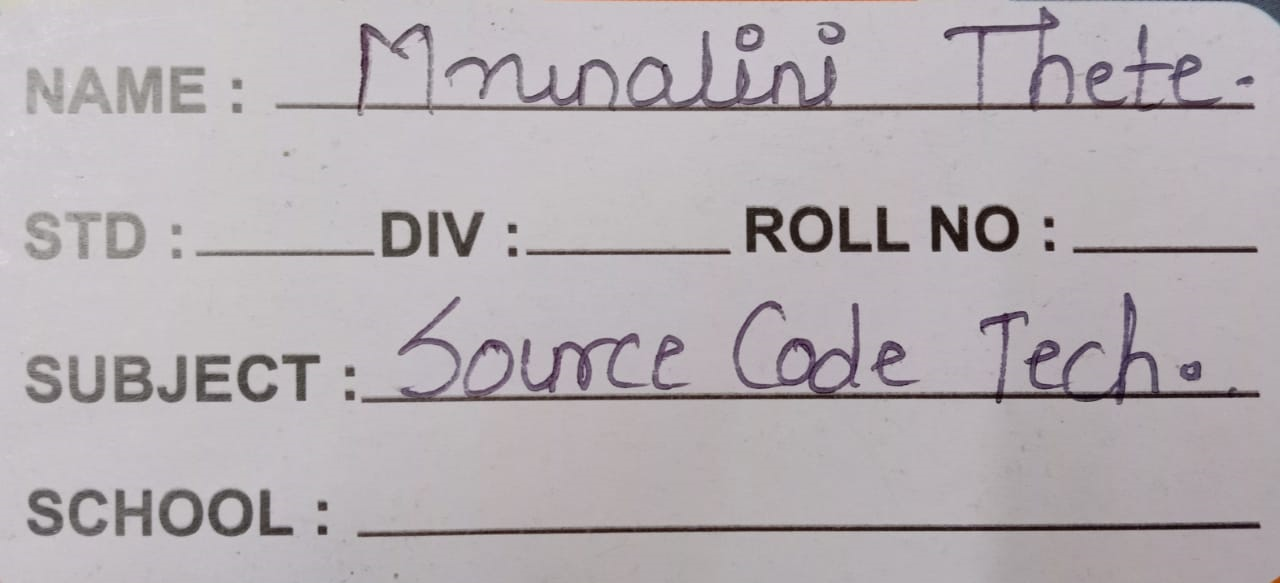 NAME : Mrunalini Thete.
STD : DIV : ROLL NO :
SUBJECT : Source Code Tech.
SCHOOL :